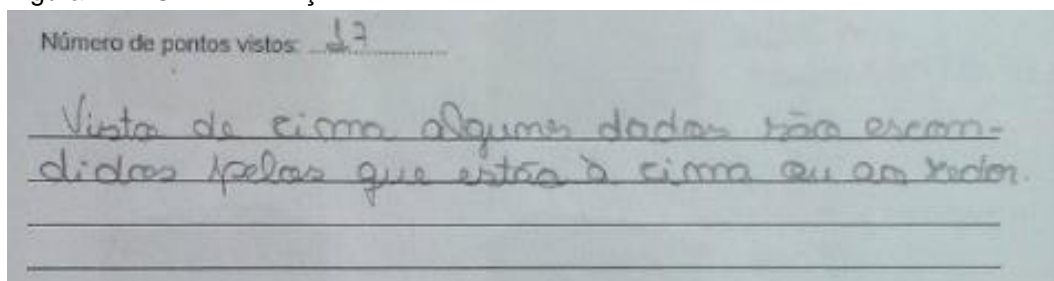 Número de pontos vistos: 17
Vista de cima alguns dados são escon-
didos pelos que estão à cima ou ao redor.